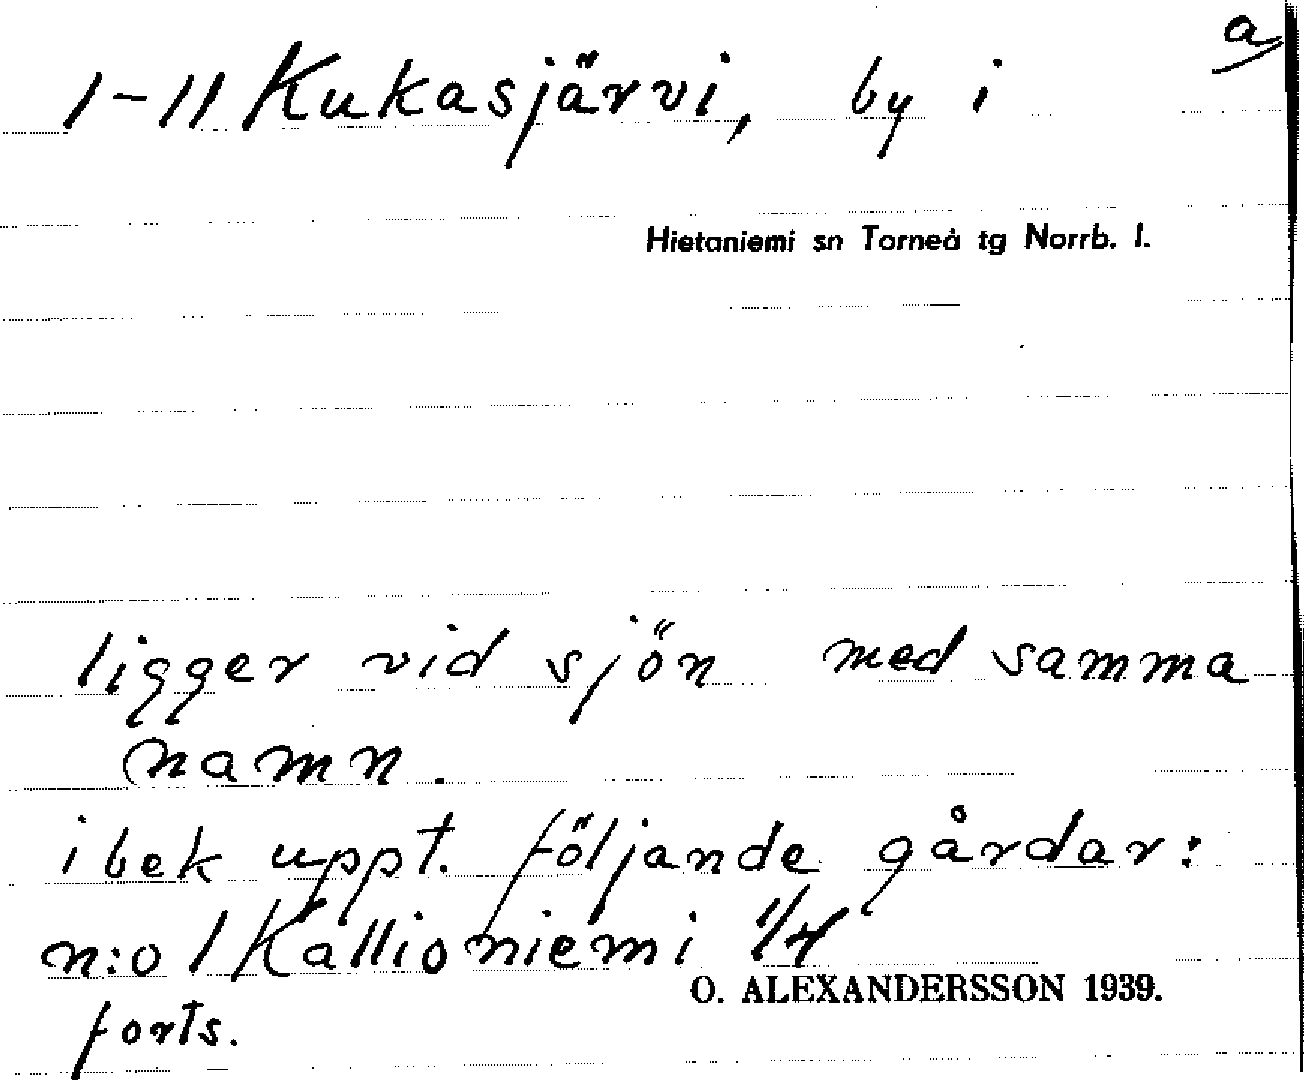 a
1-11 Kukasjärvi, by i
Hietaniemi sn Torneå tg Norrb. l.
ligger vid sjön med samma
namn.
i bek uppt. följande gårdar:
n:o 1 Kallioniemi 1/4
O. ALEXANDERSSON 1939.
forts.